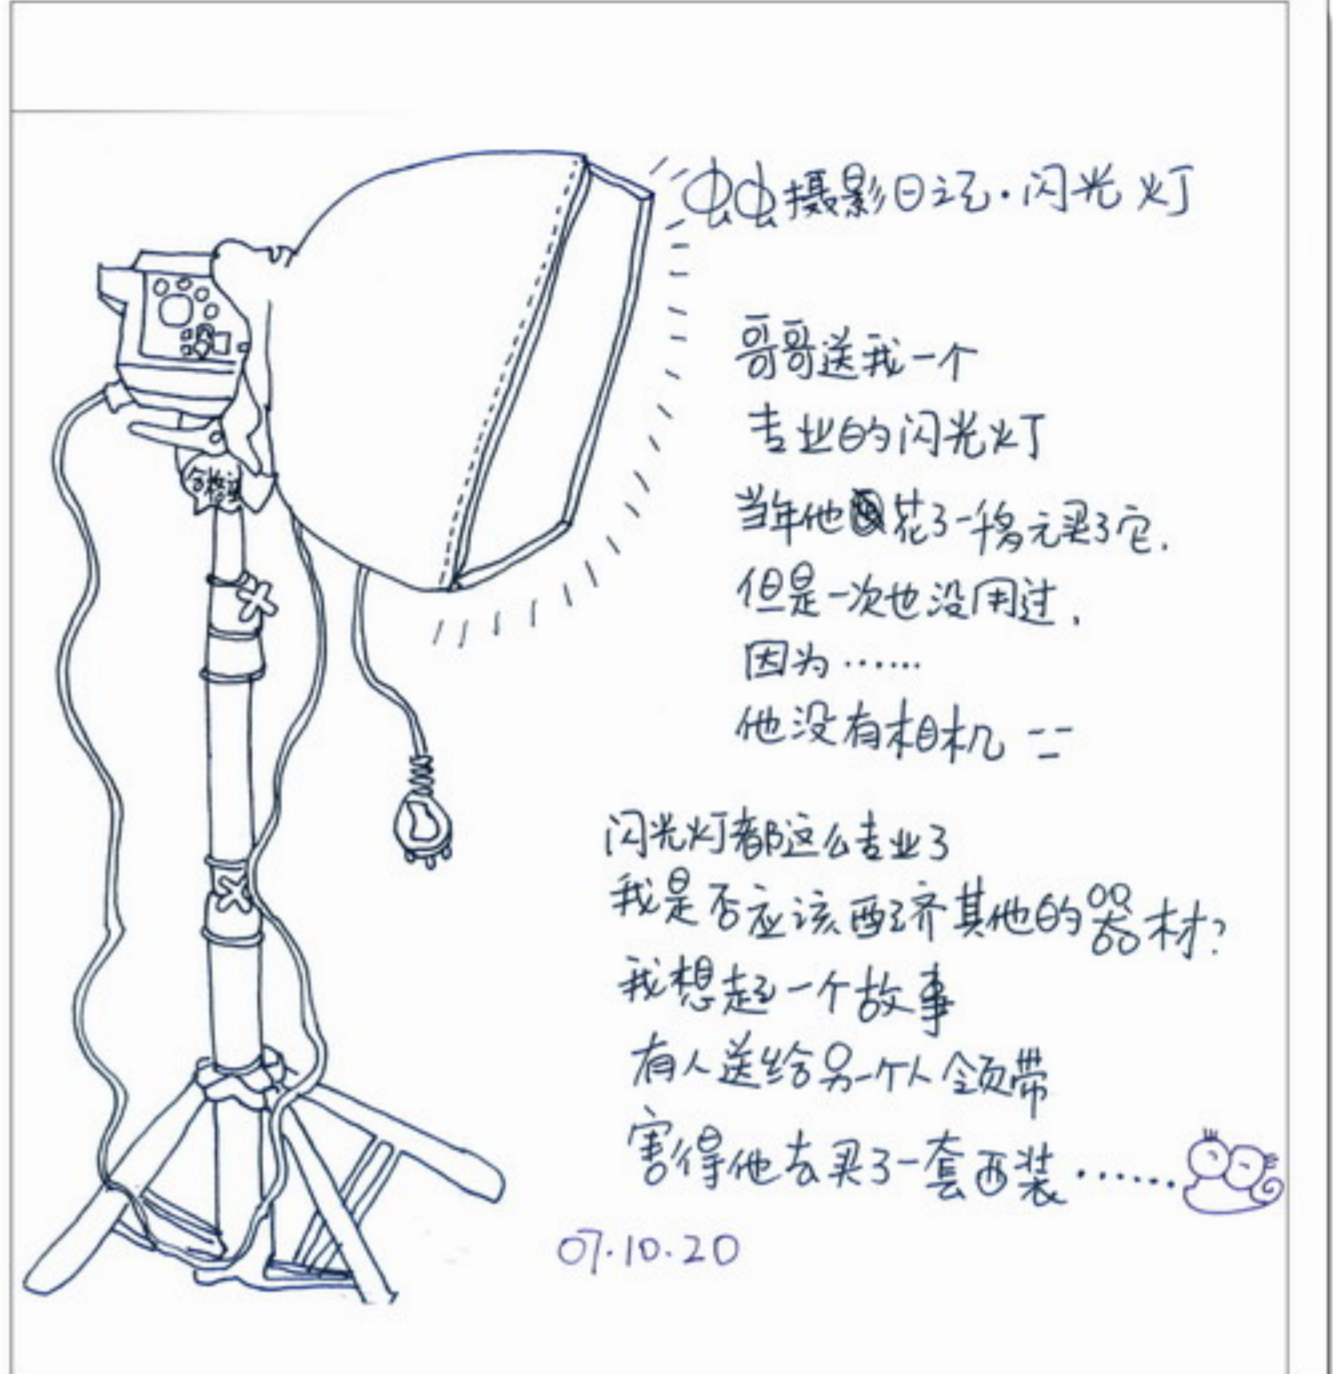 虫虫摄影日记·闪光灯
哥哥送我一个
专业的闪光灯
当年他花了一千多元买了它，
但是一次也没用过，
因为……
他没有相机 --
闪光灯都这么专业了
我是否应该配齐其他的器材？
我想起一个故事
有人送给另一个人领带
害得他去买了一套西装……
07.10.20
合格证